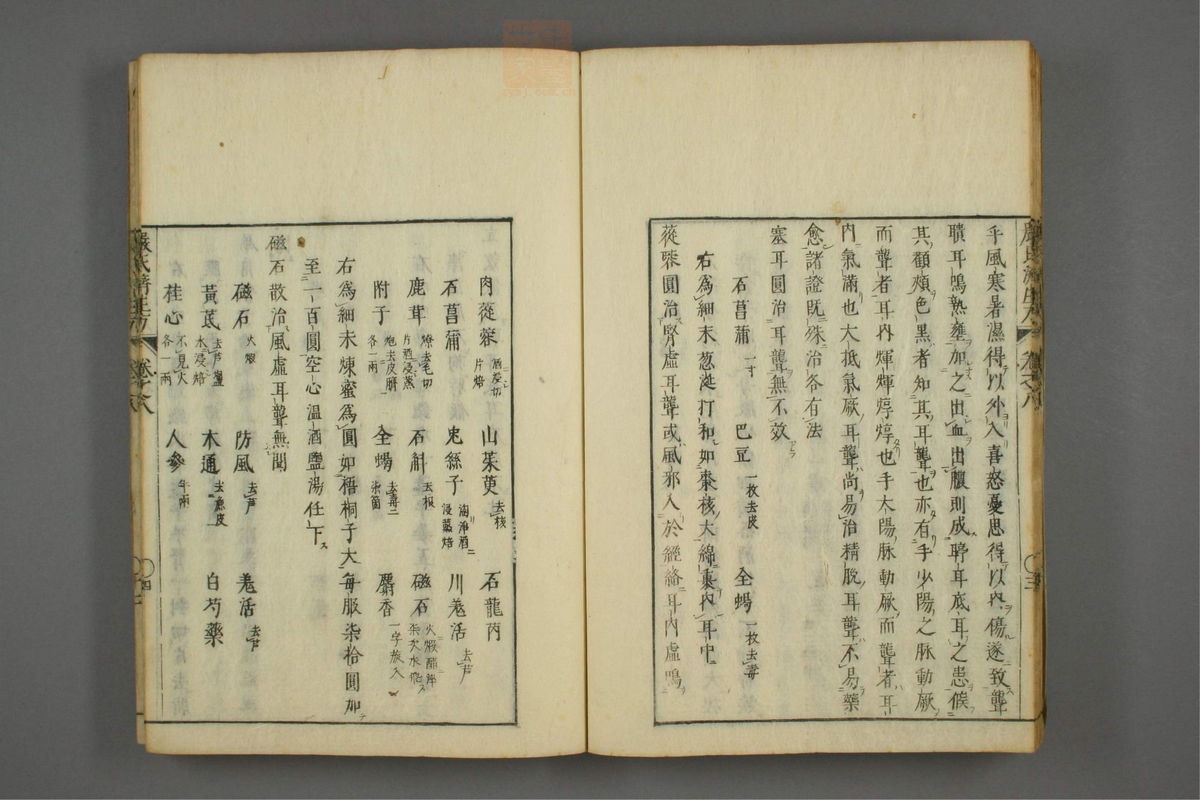 乎風寒暑濕得以外入喜怒憂思得以内傷遂致聾
聵耳鳴熱壅加之出血出膿則成聤耳底耳之患候
其顴頰色黑者知其耳聾也亦有手少陽之脉動厥
而聾者耳内煇煇焞焞也手太陽脉動厥而聾者耳
内氣滿也大抵氣厥耳聾尚易治精脫耳聾不易藥
愈諸證既殊治各有法
塞耳圓治耳聾無不效
石菖蒲一寸 巴豆一枚去皮 全蝎一枚去毒
右爲細末葱涎打和如棗核大綿裹内耳中
蓯蓉圓治腎虛耳聾或風邪入於經絡耳内虛鳴
肉蓯蓉酒浸切片焙 山茱萸去核 石龍芮
石菖蒲 兎絲子淘淨酒浸蒸焙 川羗活去芦
鹿茸燎去毛切片酒浸蒸 石斛去根 磁石火煅醋淬柒次水飛
附子炮去皮臍各一兩 全蝎去毒二柒箇 麝香一字旋入
右爲細末煉蜜爲圓如梧桐子大每服柒拾圓加
至一百圓空心温酒鹽湯任下
磁石散治風虛耳聾無聞
磁石火煅 防風去芦 羗活去芦
黃茋去芦鹽水浸焙 木通去麁皮 白芍藥
桂心不見火各一兩 人參半兩
嚴氏濟生方 卷之八